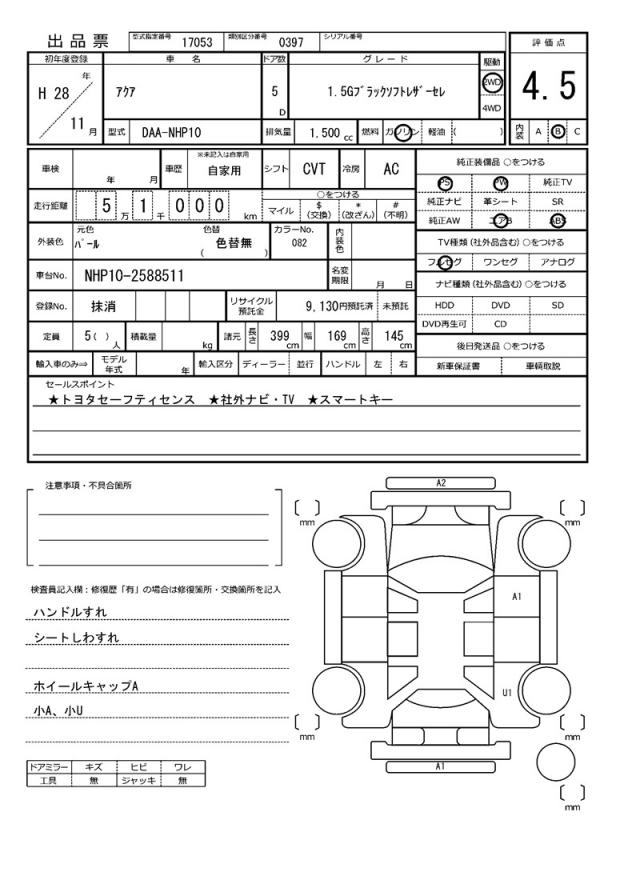 出品票 型式指定番号 17053 類別区分番号 0397 シリアル番号
初年度登録 車名 ドア数 グレード 駆動 評価点
H 28 年 11 月 アクア 5 D 1.5Gブラックソフトレザーセレ 2WD 4WD 4.5
型式 DAA-NHP10 排気量 1.500 cc 燃料 ガソリン 軽油 ( ) 内装 A B C
車検 年 月 車歴 ※未記入は自家用 自家用 シフト CVT 冷房 AC
走行距離 5 万 1 千 0 0 0 km ○をつける マイル $ (交換) * (改ざん) # (不明)
外装色 元色 パール 色替 ( 色替無 ) カラーNo. 082 内装色
車台No. NHP10-2588511 名変期限 月 日
登録No. 抹消 リサイクル預託金 9,130円預託済 未預託
定員 5( ) 人 積載量 kg 諸元 長さ 399 cm 幅 169 cm 高さ 145 cm
輸入車のみ⇒ モデル年式 年 輸入区分 ディーラー 並行 ハンドル 左 右
純正装備品 ○をつける
PS PW 純正TV
純正ナビ 革シート SR
純正AW エアB ABS
TV種類 (社外品含む) ○をつける
フルセグ ワンセグ アナログ
ナビ種類 (社外品含む) ○をつける
HDD DVD SD
DVD再生可 CD
後日発送品 ○をつける
新車保証書 車輌取説
セールスポイント
★トヨタセーフティセンス ★社外ナビ・TV ★スマートキー
注意事項・不具合箇所
検査員記入欄：修復歴「有」の場合は修復箇所・交換箇所を記入
ハンドルすれ
シートしわすれ
ホイールキャップA
小A、小U
ドアミラー キズ ヒビ ワレ
工具 無 ジャッキ 無
A2
mm mm
A1
U1
mm mm
A1
mm